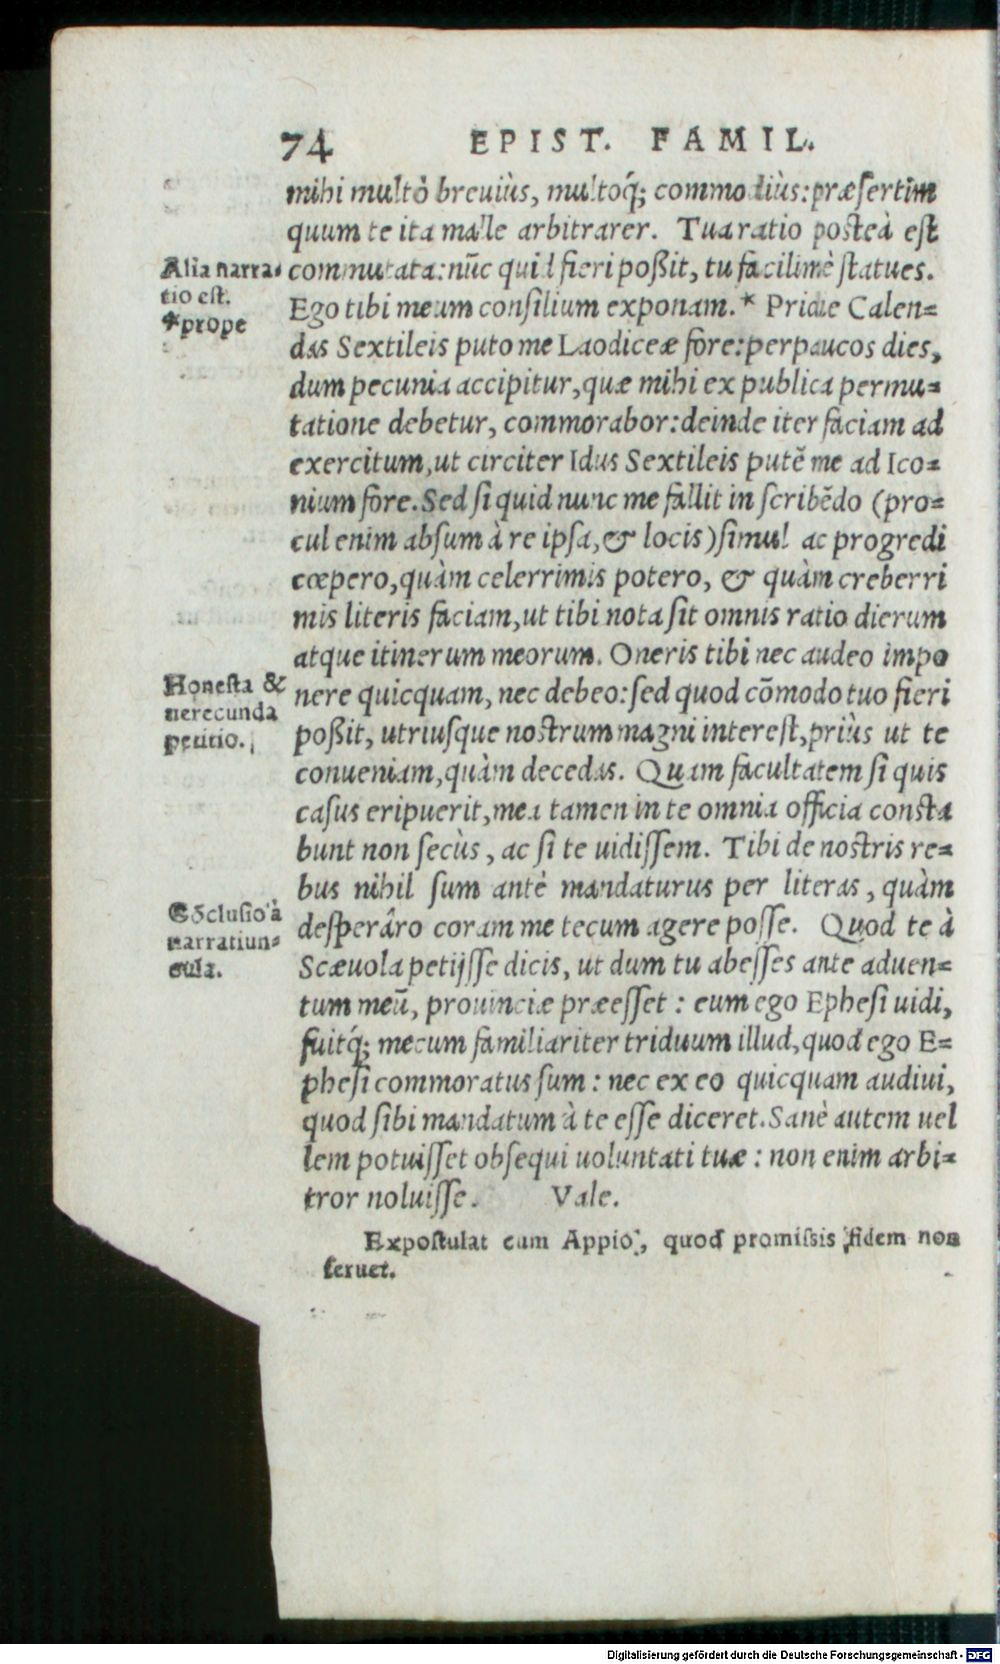 74 EPIST. FAMIL.
mihi multò breuiùs, multoq́; commodiùs: præsertim
quum te ita malle arbitrarer. Tua ratio posteà est
commutata: nũc quid fieri poßit, tu facilimè statues.
Ego tibi meum consilium exponam. * Pridie Calen=
das Sextileis puto me Laodiceæ fore: perpaucos dies,
dum pecunia accipitur, quæ mihi ex publica permu=
tatione debetur, commorabor: deinde iter faciam ad
exercitum, ut circiter Idus Sextileis putẽ me ad Ico=
nium fore. Sed si quid nunc me fallit in scribẽdo (pro=
cul enim absum à re ipsa, & locis) simul ac progredi
cœpero, quàm celerrimis potero, & quàm creberri
mis literis faciam, ut tibi nota sit omnis ratio dierum
atque itinerum meorum. Oneris tibi nec audeo impo
nere quicquam, nec debeo: sed quod cõmodo tuo fieri
poßit, utriusque nostrum magni interest, priùs ut te
conueniam, quàm decedas. Quam facultatem si quis
casus eripuerit, mea tamen in te omnia officia consta
bunt non secùs, ac si te uidissem. Tibi de nostris re=
bus nihil sum antè mandaturus per literas, quàm
desperâro coram me tecum agere posse. Quod te à
Scæuola petijsse dicis, ut dum tu abesses ante aduen=
tum meũ, prouinciæ præesset: eum ego Ephesi uidi,
fuitq́; mecum familiariter triduum illud, quod ego E=
phesi commoratus sum: nec ex eo quicquam audiui,
quod sibi mandatum à te esse diceret. Sanè autem uel
lem potuisset obsequi uoluntati tuæ: non enim arbi=
tror noluisse. Vale.
Expostulat cum Appio, quod promissis fidem non
seruet.
Alia narra=
tio est.
*prope
Honesta &
uerecunda
petitio.
Cõclusio à
narratiun=
cula.
Digitalisierung gefördert durch die Deutsche Forschungsgemeinschaft - DFG